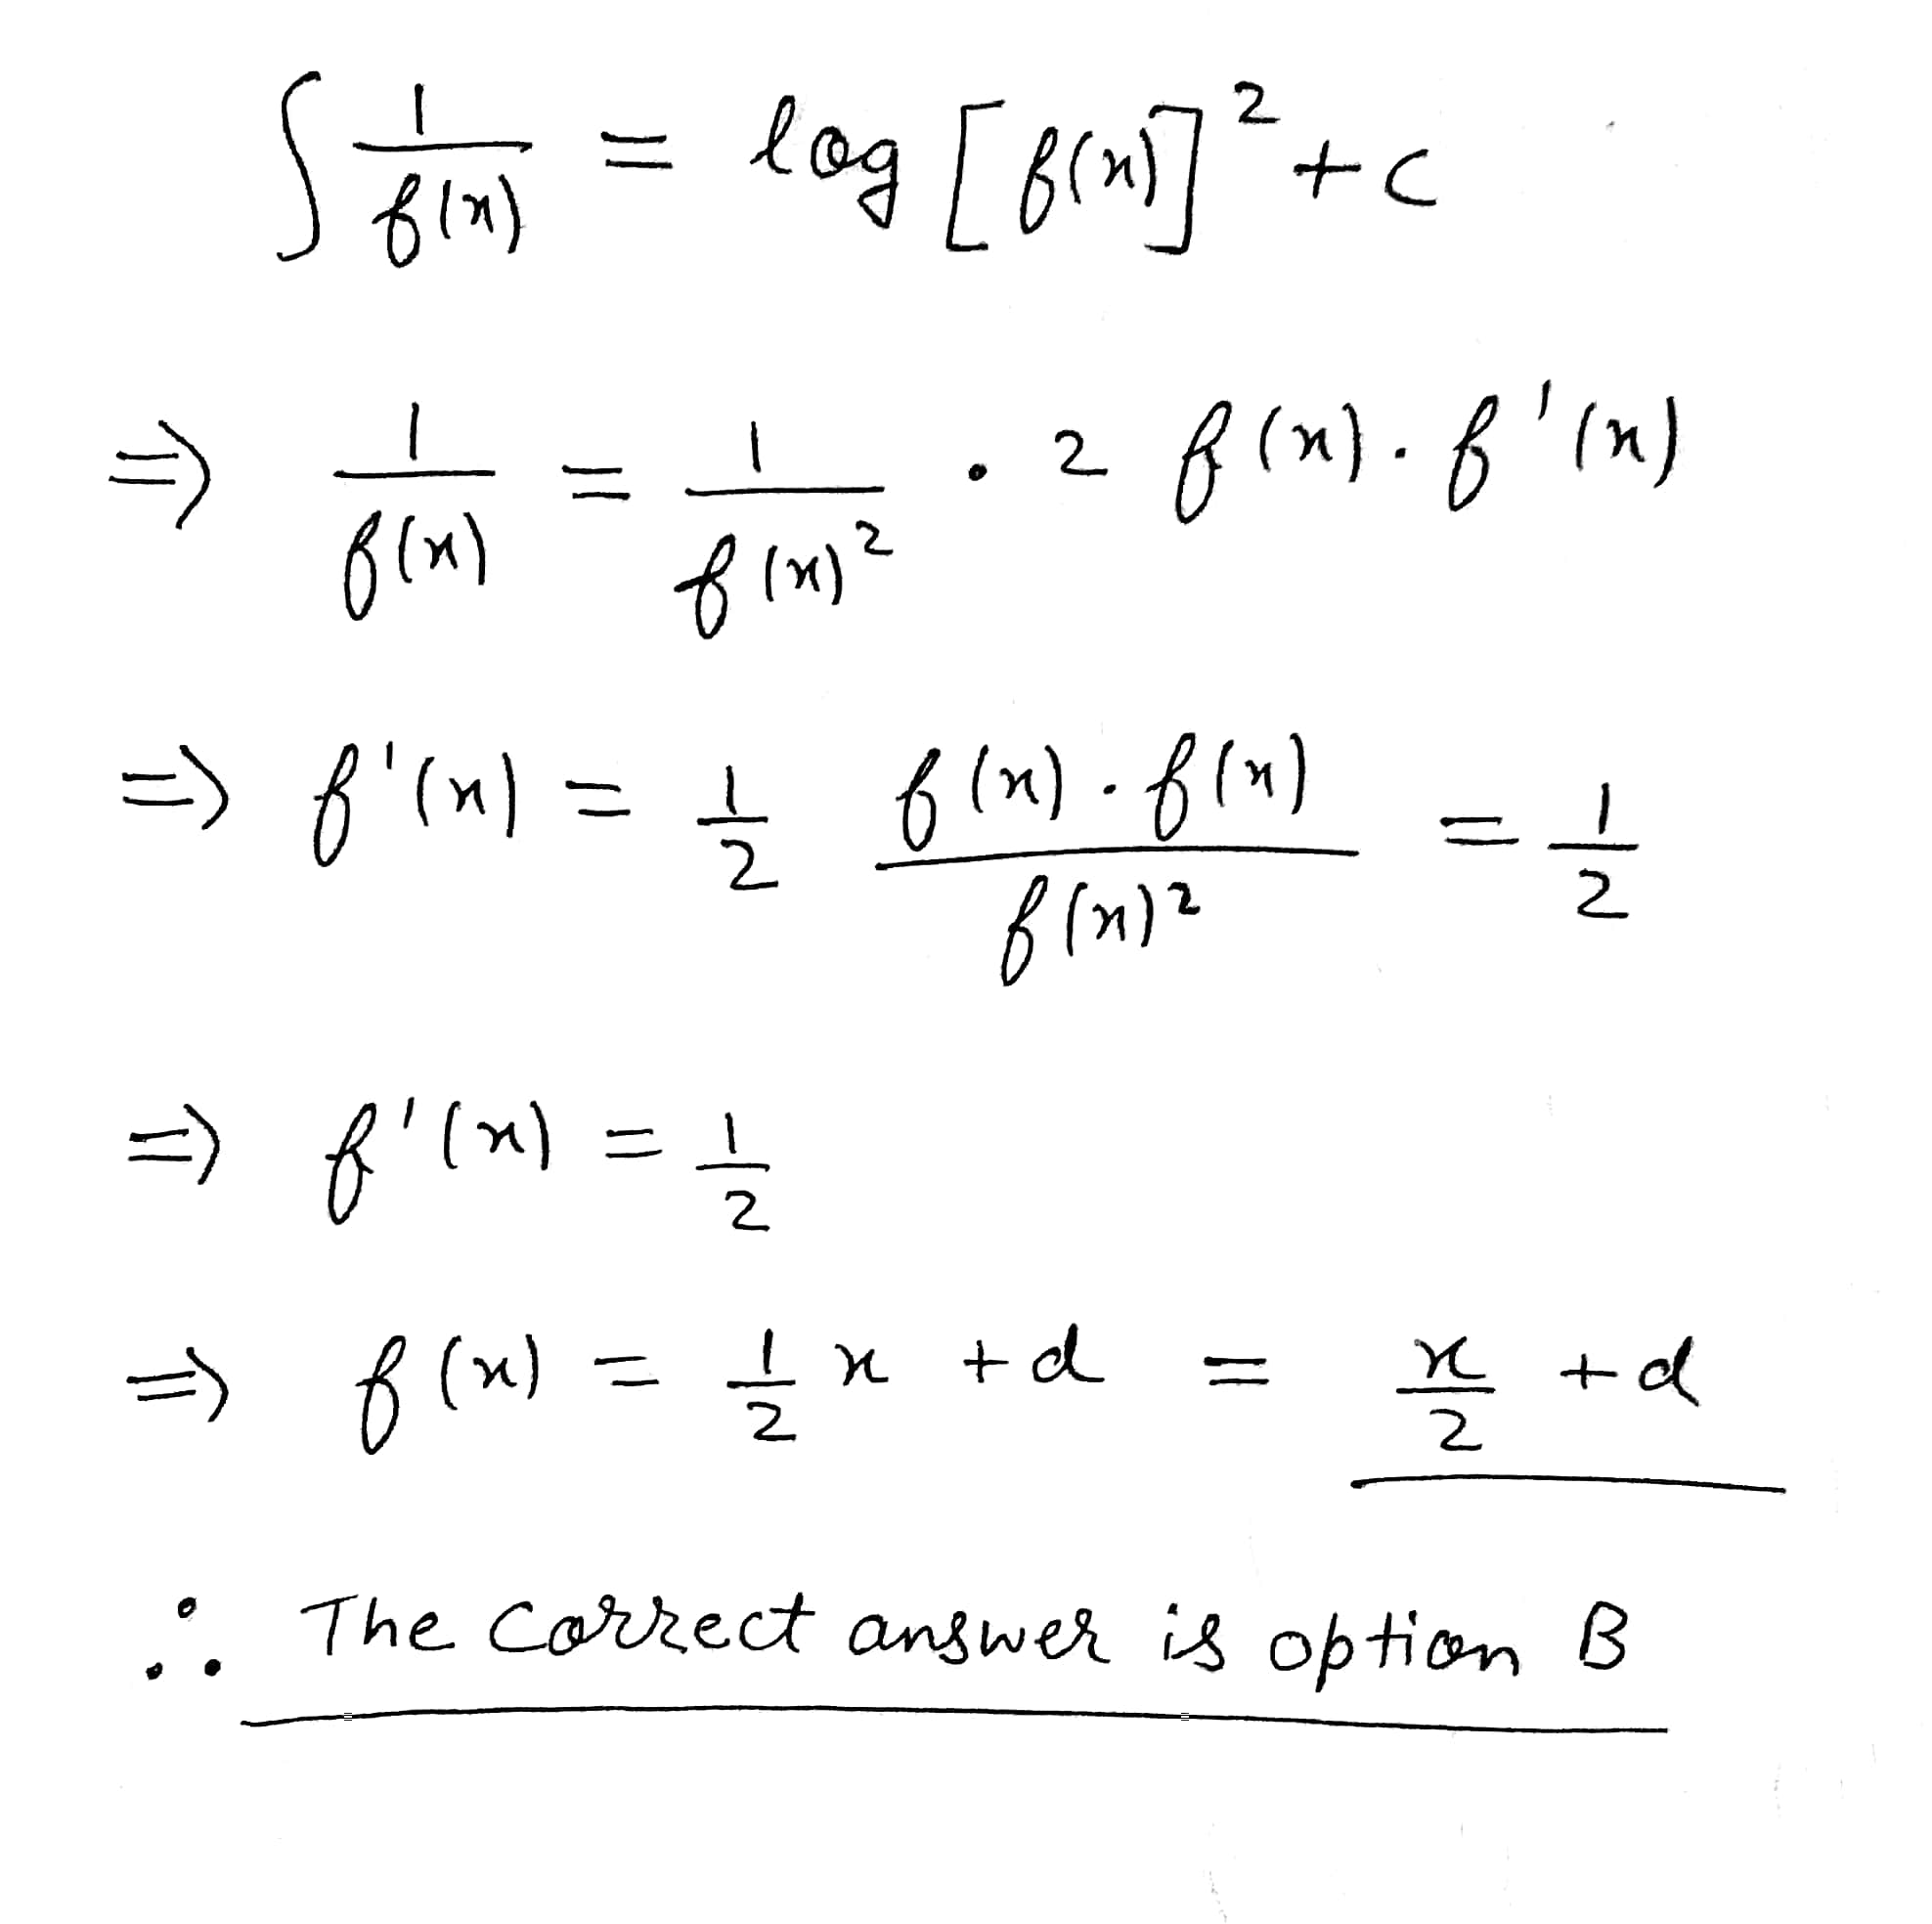 ∫ 1/f(x) = log [f(x)]² + c
⇒ 1/f(x) = 1/f(x)² · 2 f(x) · f'(x)
⇒ f'(x) = 1/2 f(x) · f(x)/f(x)² = 1/2
⇒ f'(x) = 1/2
⇒ f(x) = 1/2 x + d = x/2 + d
∴ The correct answer is option B